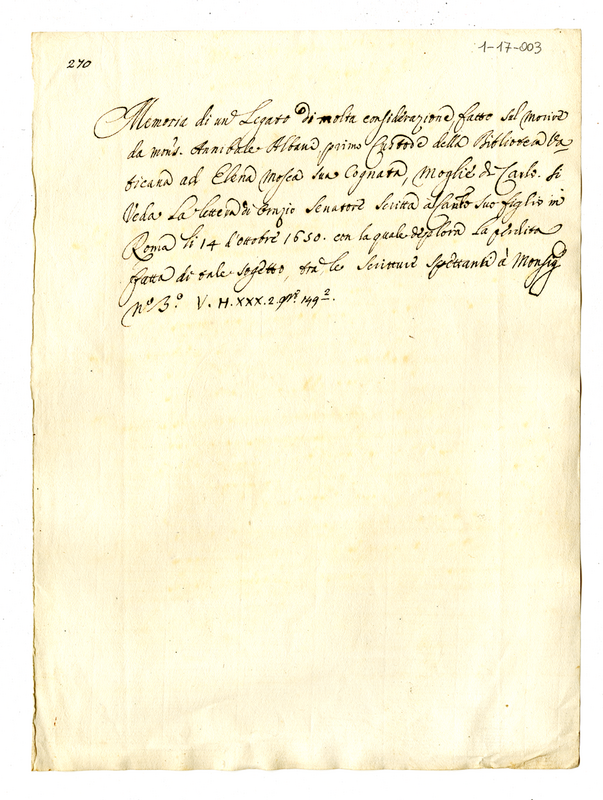 1-17-003
270
Memoria di un Legato di molta considerazione fatto sul morire
da mons. Annibale Albani primo Custode della Biblioteca Va=
ticana ad Elena Mosca sua Cognata, Moglie di Carlo. Si
Veda La lettera di Orazio Senatore scritta a suo figlio in
Roma li 14 d'ottobre 1650. con la quale deplora La perdita
fatta di tale sogetto, tra le Scritture spettanti à Monsig
nº 3.º V. H. XXX. 2. 149